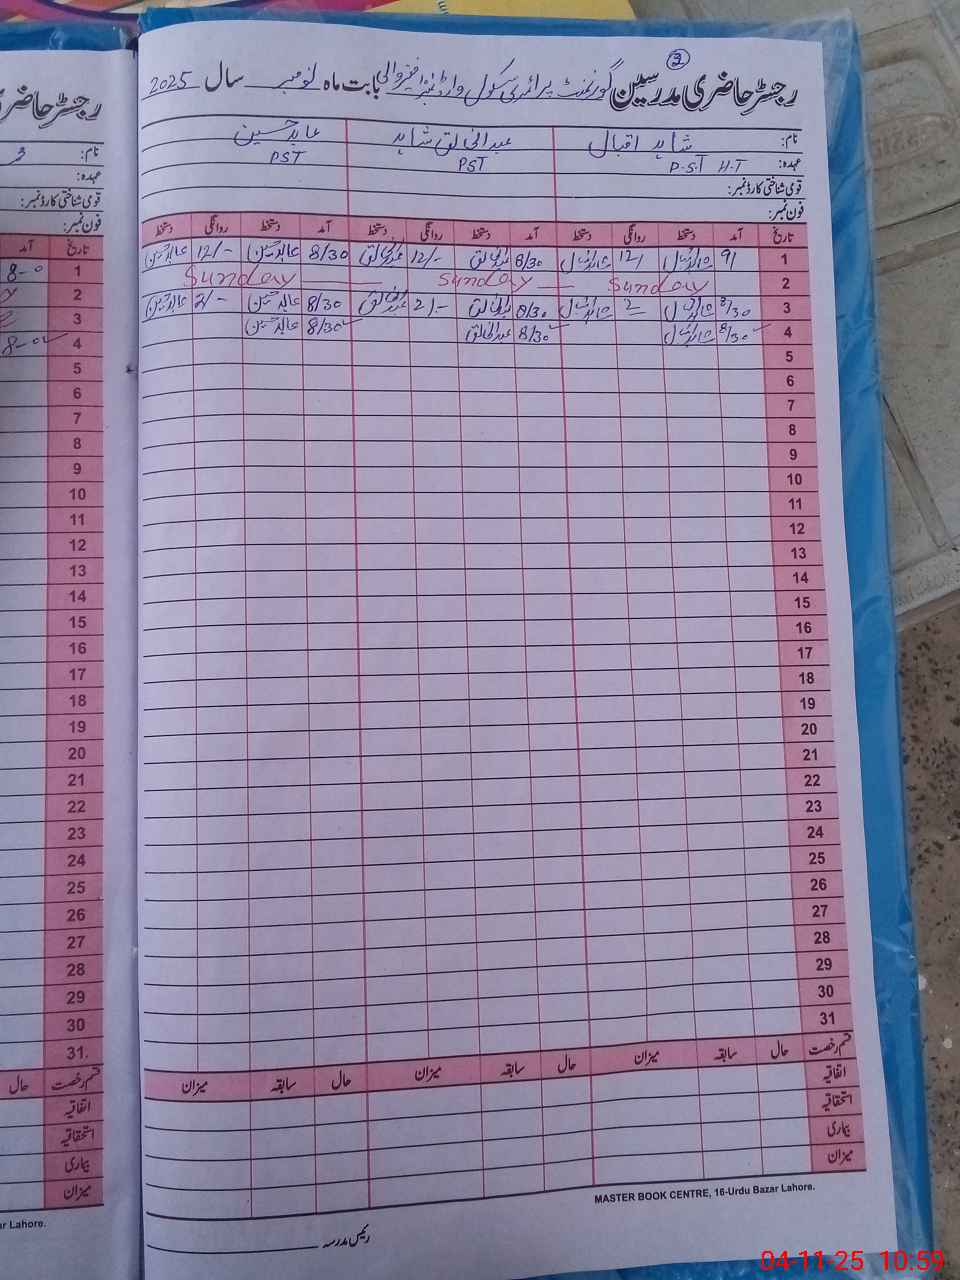 3
رجسٹر حاضری مدرسین گورنمنٹ پرائمری سکول وارڈ نمبر فقیر والی بابت ماہ نومبر سال 2025
نام: شاہد اقبال عبدالخالق شاہد عابد حسین
عہدہ: P.S.T H.T PST PST
قومی شناختی کارڈ نمبر:
فون نمبر:
تاریخ آمد دستخط روانگی دستخط آمد دستخط روانگی دستخط آمد دستخط روانگی دستخط
1 9/ شاہد اقبال 12/ شاہد اقبال 8/30 عبدالخالق 12/- عبدالخالق 8/30 عابد حسین 12/- عابد حسین
2 Sunday Sunday Sunday
3 8/30 شاہد اقبال 2 شاہد اقبال 8/30 عبدالخالق 2/- عبدالخالق 8/30 عابد حسین 2/- عابد حسین
4 8/30 شاہد اقبال 8/30 عبدالخالق 8/30 عابد حسین
5
6
7
8
9
10
11
12
13
14
15
16
17
18
19
20
21
22
23
24
25
26
27
28
29
30
31
قسم رخصت حال سابقہ میزان حال سابقہ میزان حال سابقہ میزان
اتفاقیہ
استحقاقیہ
بیماری
میزان
MASTER BOOK CENTRE, 16-Urdu Bazar Lahore.
رئیس مدرسہ
رجسٹر حاضری
نام:
عہدہ:
قومی شناختی کارڈ نمبر:
فون نمبر:
تاریخ آمد
1 8-0
2
3
4 8-0
5
6
7
8
9
10
11
12
13
14
15
16
17
18
19
20
21
22
23
24
25
26
27
28
29
30
31.
قسم رخصت حال
اتفاقیہ
استحقاقیہ
بیماری
میزان
ar Lahore.
04-11-25 10:59